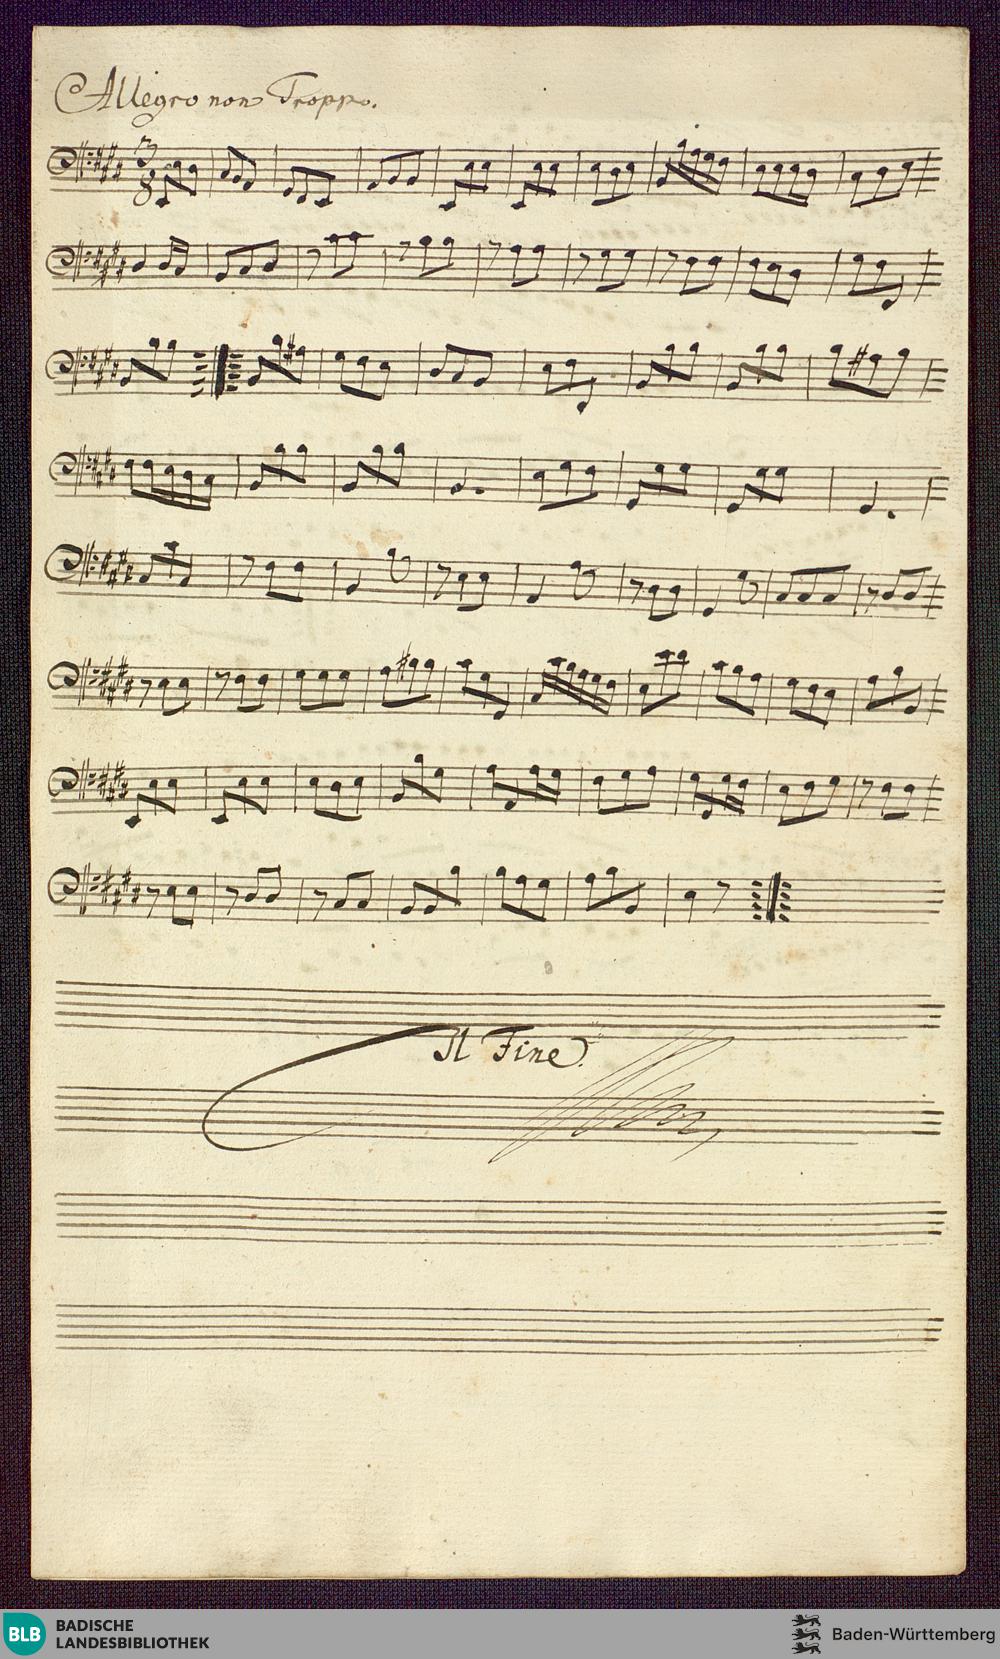 Allegro non Troppo.
3
8
Il Fine.
BLB
BADISCHE
LANDESBIBLIOTHEK
Baden-Württemberg